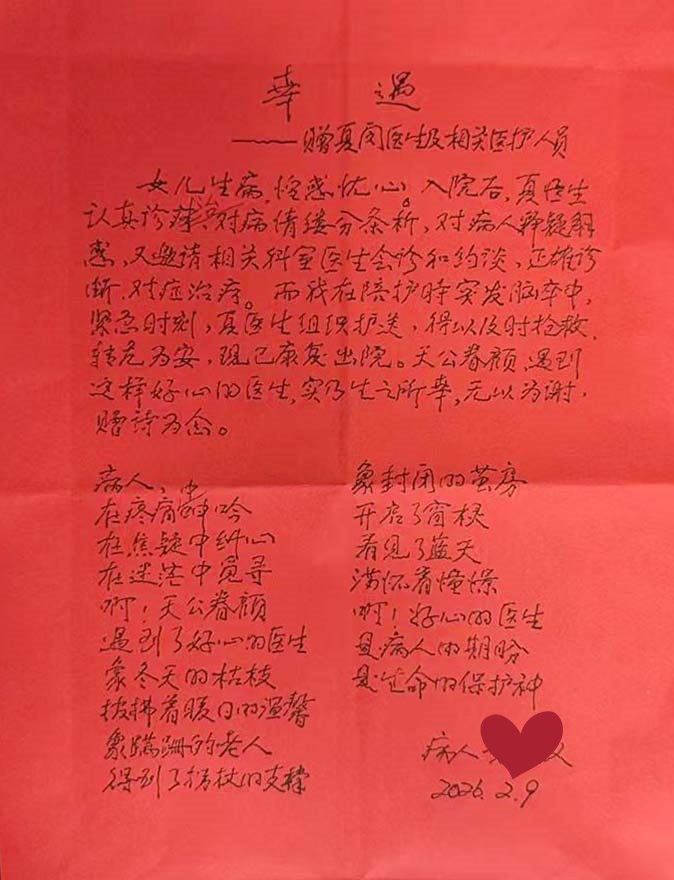 幸 遇
——赠夏闵医生及相关医护人员
女儿生病,惶惑忧心。入院后,夏医生
认真诊琢,对病情缕分条析,对病人释疑解
惑,又邀请相关科室医生会诊和约谈,正确诊
断,对症治疗。而我在陪护时突发脑卒中,
紧急时刻,夏医生组织护送,得以及时抢救,
转危为安,现已康复出院。天公眷顾,遇到
这样好心的医生,实乃生之所幸,无以为谢,
赠诗为念。
病人,
在疼痛中呻吟
在焦疑中纠心
在迷茫中觅寻
啊!天公眷顾
遇到了好心的医生
象冬天的枯枝
披拂着暖日的温馨
象蹒跚的老人
得到了拐杖的支撑
象封闭的茧房
开启了窗棂
看见了蓝天
满怀着憧憬
啊!好心的医生
是病人的期盼
是生命的保护神
病人
2026.2.9